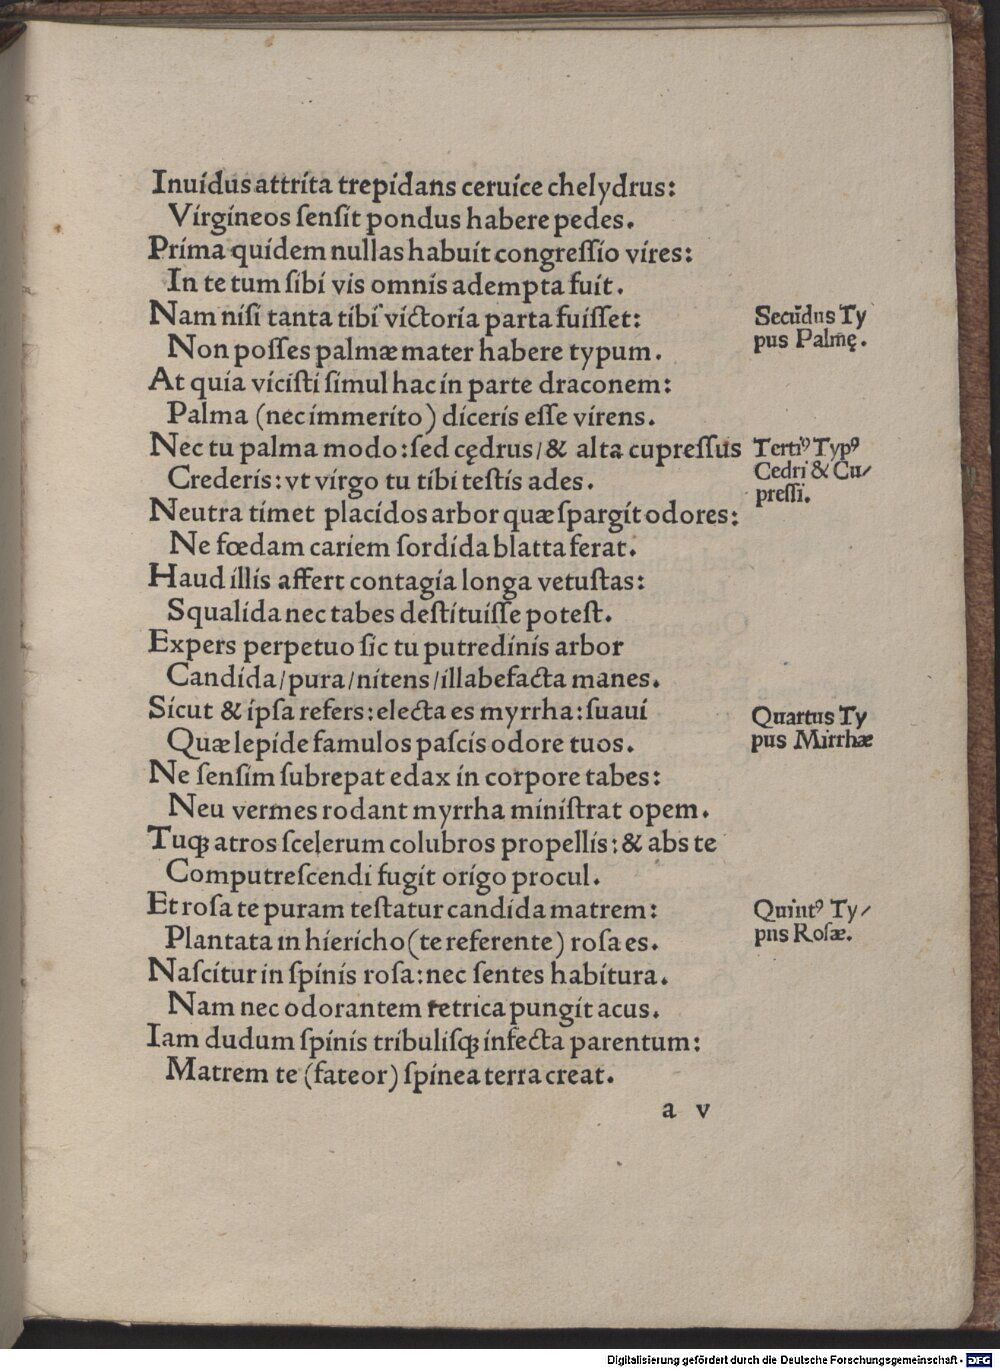 Inuidus attrita trepidans ceruice chelydrus:
Virgineos ſenſit pondus habere pedes.
Prima quidem nullas habuit congreſſio vires:
In te tum ſibi vis omnis adempta fuit.
Nam niſi tanta tibi victoria parta fuiſſet:
Secūdus Ty
Non poſſes palmæ mater habere typum.
pus Palmę.
At quia viciſti ſimul hac in parte draconem:
Palma (nec immerito) diceris eſſe virens.
Nec tu palma modo: ſed cędrus/& alta cupreſſus
Tertiꝰ Typꝰ
Cedri & Cu/
Crederis: vt virgo tu tibi teſtis ades.
preſſi.
Neutra timet placidos arbor quæ ſpargit odores:
Ne fœdam cariem ſordida blatta ferat.
Haud illis affert contagia longa vetuſtas:
Squalida nec tabes deſtituiſſe poteſt.
Expers perpetuo ſic tu putredinis arbor
Candida/pura/nitens/illabefacta manes.
Sicut & ipſa refers: electa es myrrha: ſuaui
Quartus Ty
Quæ lepide famulos paſcis odore tuos.
pus Mirrhæ
Ne ſenſim ſubrepat edax in corpore tabes:
Neu vermes rodant myrrha miniſtrat opem.
Tuqꝫ atros ſcelerum colubros propellis: & abs te
Computreſcendi fugit origo procul.
Et roſa te puram teſtatur candida matrem:
Quintꝰ Ty/
Plantata in hiericho (te referente) roſa es.
pus Roſæ.
Naſcitur in ſpinis roſa: nec ſentes habitura.
Nam nec odorantem tetrica pungit acus.
Iam dudum ſpinis tribuliſqꝫ infecta parentum:
Matrem te (fateor) ſpinea terra creat.
a v
Digitalisierung gefördert durch die Deutsche Forschungsgemeinschaft - DFG